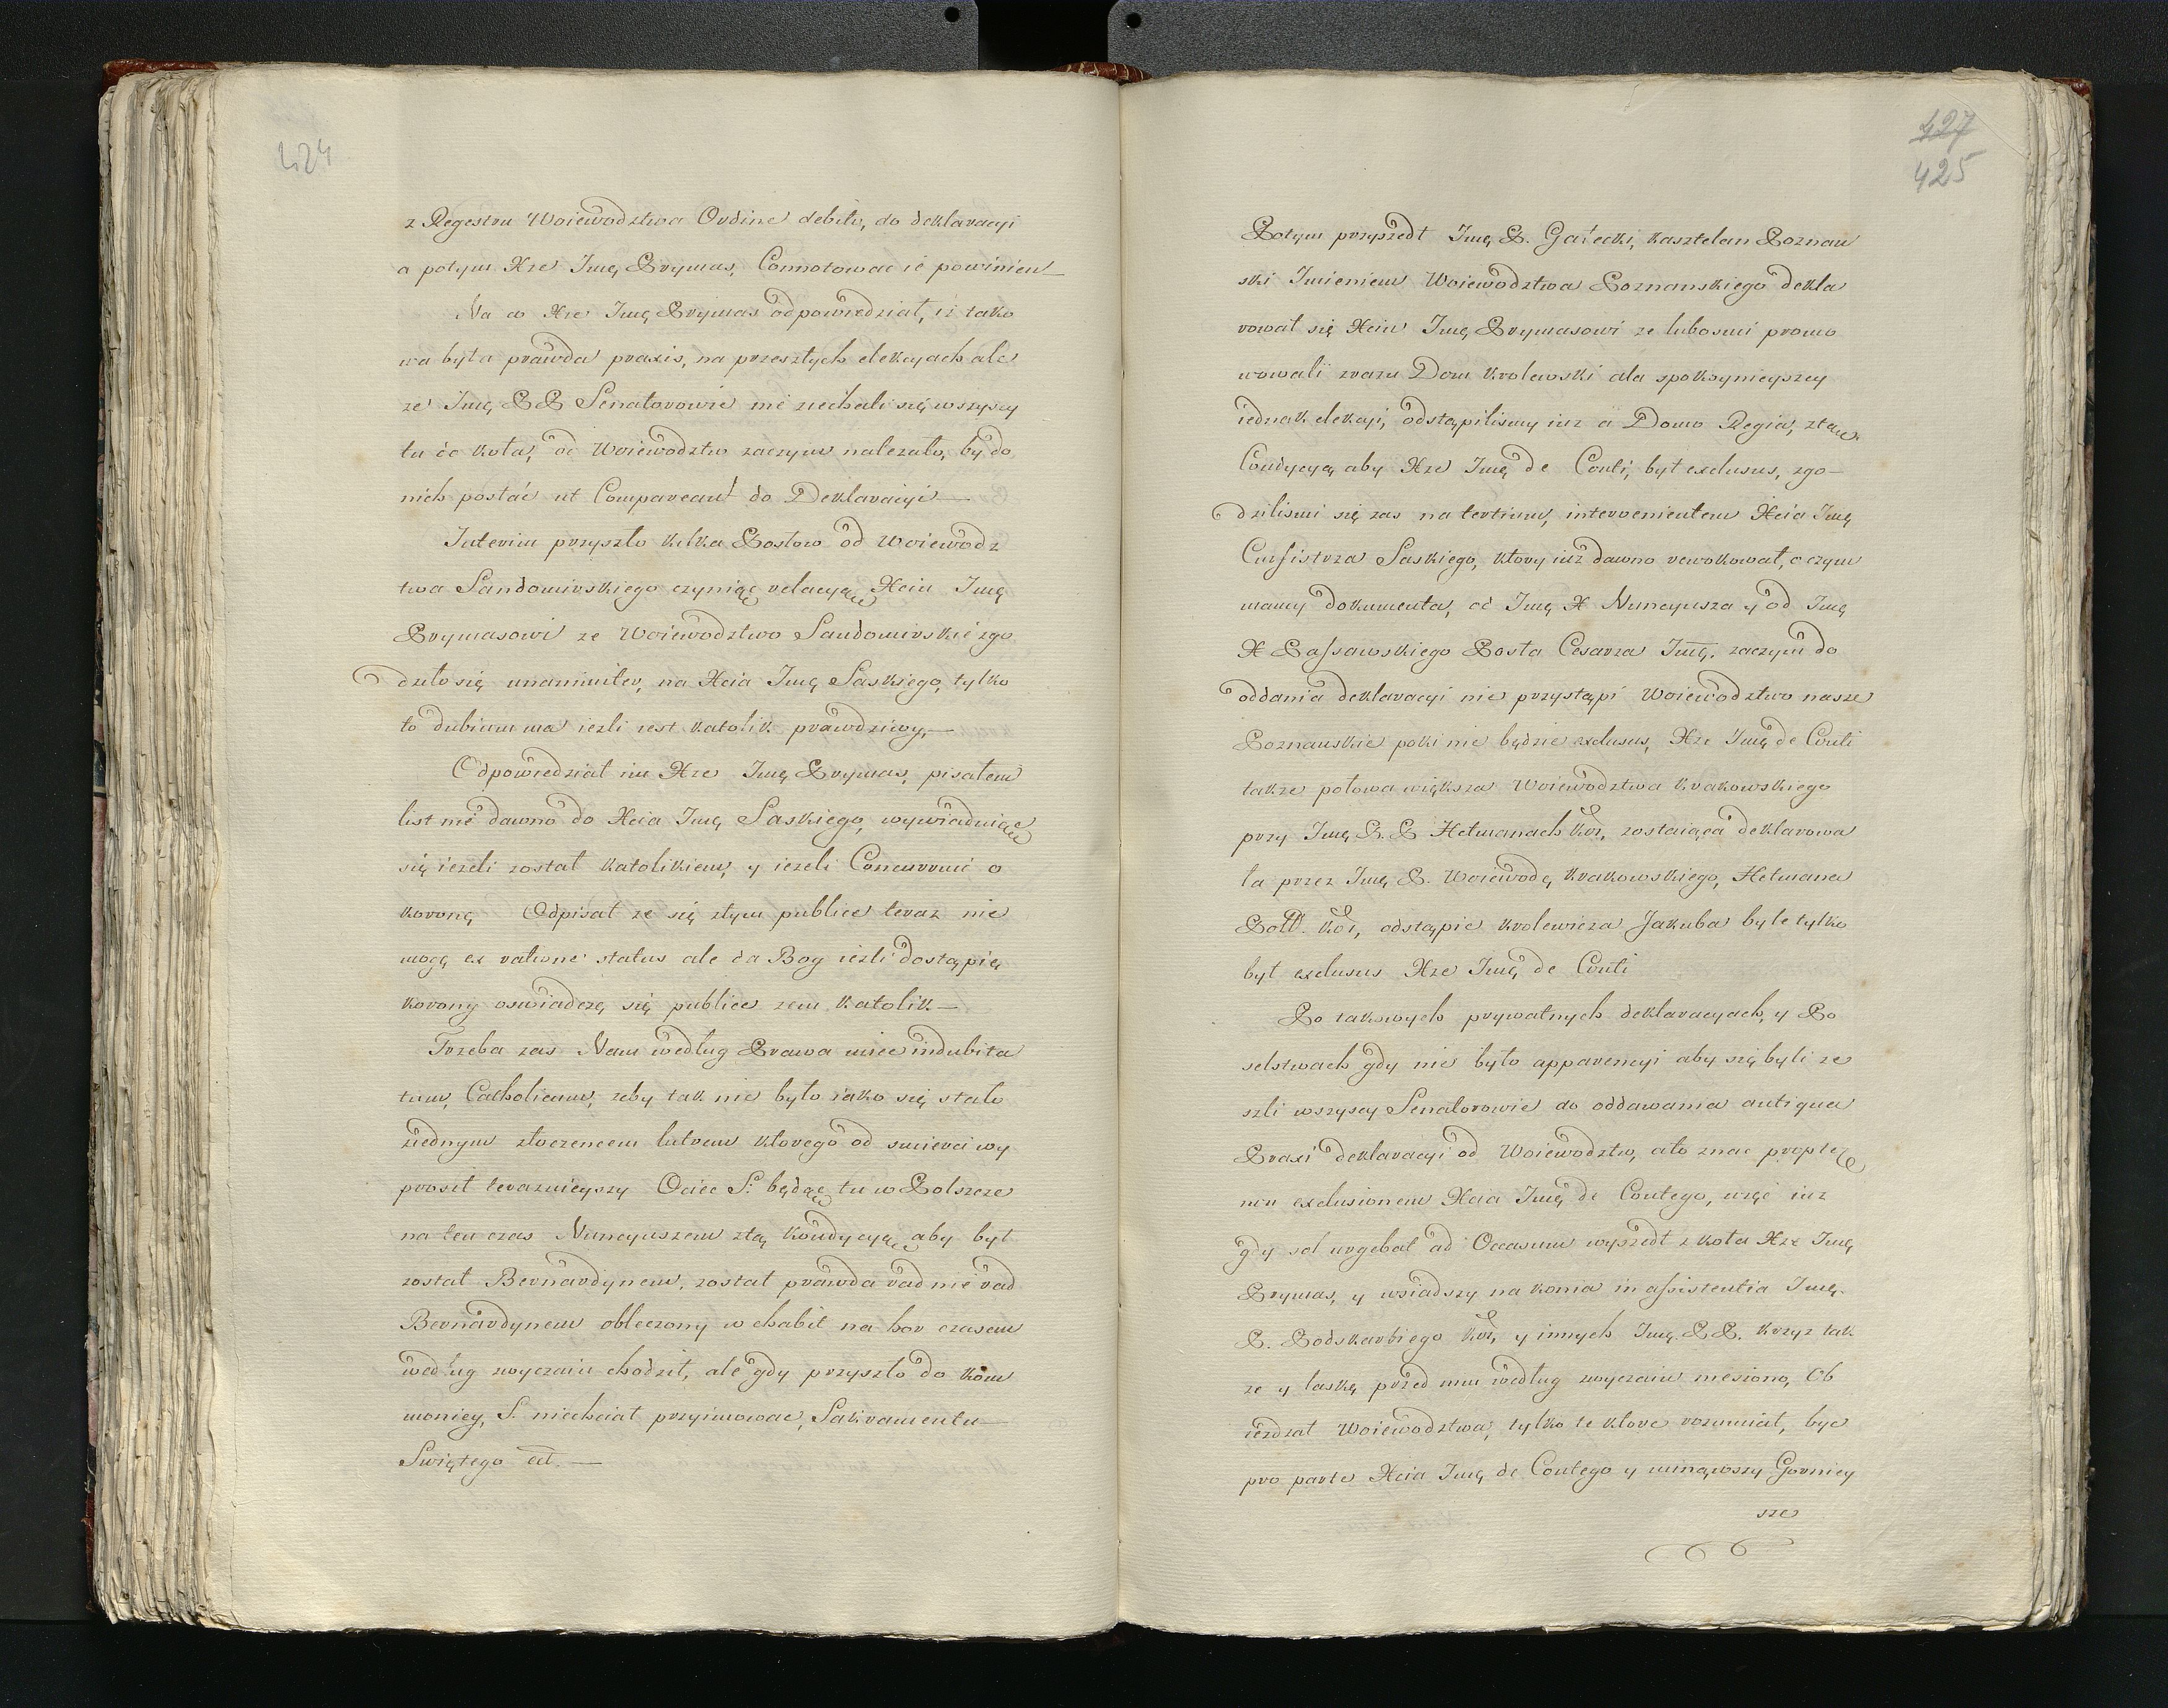 424
z Regestru Woiewodztwa Ordine debito, do deklaracyi
a potym Xże Jmę Prymas, Connotowac ie powinien —
Na co Xże Jmę Prymas odpowiedział, iż tako
wa była prawda praxis, na przeszłych elekcyach ale
że Jmę PP Senatorowie nie ziechali się wszyscy
tu do koła, od Woiewodztw zaczym należało, by do
nich posłać ut Compareant do Deklaracyi —
Interim przyszło kilka Posłow od Woiewodz
twa Sandomirskiego czyniąc relacyą Xciu Jmę
Prymasowi ze Woiewodztwo Sandomirskie zgo
dziło się unanimiter, na Xcia Jmę Saskiego, tylko
to dubium ma iezli iest katolik prawdziwy, —
Odpowiedział im Xże Jmę Prymas, pisałem
list nie dawno do Xcia Jmę Saskiego, wywiaduiąc
się ieżeli został katolikiem, y ieżeli Concurruie o
koronę Odpisał ze się ztym publice teraz nie
mogę ex ratione status ale da Bog iezli dostąpię
korony oswiadczę się publice zem katolik —
Trzeba zas Nam według Prawa miec indubita
tum, Catholicum, zeby tak nie było iako się stało
ziednym złoczencem lutrem ktorego od smierci wy
prosił teraznieyszy Ociec S. będąc tu w Polszcze
na ten czas Nuncyuszem ztą kondycyą aby był
został Bernardynem, został prawda rad nie rad
Bernardynem obleczony w chabit na hor czasem
według zwyczaiu chodził, ale gdy przyszło do kom
moniey, S. niechciał przyimowac, Sakramentu —
Swiętego etc. —
427
425
Potym przyszedł Jmę P. Gałecki, kasztelan Poznan
ski Imieniem Woiewodztwa Poznanskiego dekla
rował się Xciu Jmę Prymasowi ze lubosmi promo
wowali zrazu Dom krolewski dla spokoynieyszey
iednak elekcyi, odstąpilismy iuz a Domo Regia, z tą
Condycyą aby Xże Jmę de Conti, był exclusus, zgo —
dzilismi się zas na tertium, intervenientem Xcia Jmę
Curfistrza Saskiego, ktory iuż dawno rewokował, o czym
mamy dokumenta, od Jmę X Nuncyusza y od Jmę
X Passawskiego Posła Cesarza Jmę. zaczym do
oddania deklaracyi nie przystąpi Woiewodztwo nasze
Poznanskie poki nie będzie exclusus, Xże Jmę de Conti
także połowa większa Woiewodztwa Krakowskiego
przy Jmę P. P Hetmanach kor, zostaiąca deklarowa
ła przez Jmę P. Woiewodę krakowskiego, Hetmana
Poll. kor, odstąpic krolewicza Jakuba byle tylko
był exclusus Xże Jmę de Conti
Po takowych prywatnych deklaracyach, y Po
selstwach gdy nie było apparencyi aby się byli ze
szli wszyscy Senatorowie do oddawania antiqua
Praxi deklaracyi od Woiewodztw, ato znac propter
non exclusionem Xcia Jmę de Contego, więc iuż
gdy sol urgebat ad Occasum wyszedł z koła Xże Jmę
Prymas, y wsiadszy na konia in assistentia Jmę.
P. Podskarbiego kor, y innych Jmę. P P. krzyz tak
ze y laskę przed nim według zwyczaiu niesiono, Ob
iezdzał Woiewodztwa, tylko te ktore rozumiał, byc
pro parte Xcia Jmę de Contego y minąwszy Gorniey
sze